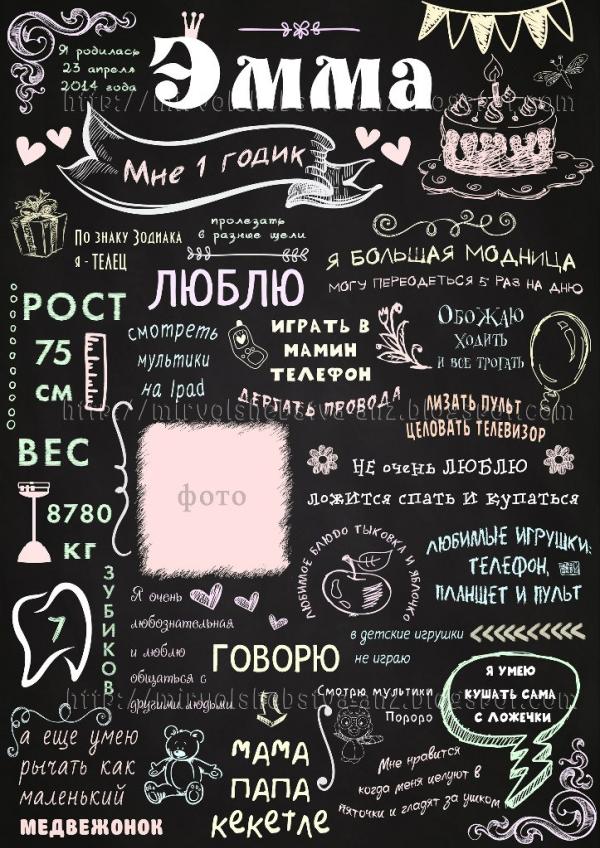 Я родилась
23 апреля
2014 года
Эмма
http://mirvolshebstva-anz.blogspot.com
Мне 1 годик
По знаку Зодиака
я - ТЕЛЕЦ
пролезать
в разные щели
ЛЮБЛЮ
Я БОЛЬШАЯ МОДНИЦА
МОГУ ПЕРЕОДЕТЬСЯ 5 РАЗ НА ДНЮ
РОСТ
75
СМ
смотреть
мультики
на Ipad
ИГРАТЬ В
МАМИН
ТЕЛЕФОН
ОБОЖАЮ
ХОДИТЬ
И ВСЕ ТРОГАТЬ
http://mirvolshebstva-anz.blogspot.com
ДЕРГАТЬ ПРОВОДА
ЛИЗАТЬ ПУЛЬТ
ЦЕЛОВАТЬ ТЕЛЕВИЗОР
ВЕС
8780
КГ
фото
НЕ ОЧЕНЬ ЛЮБЛЮ
ЛОЖИТСЯ СПАТЬ И КУПАТЬСЯ
ЛЮБИМОЕ БЛЮДО ТЫКОВКА И ЯБЛОЧКО
ЛЮБИМЫЕ ИГРУШКИ:
ТЕЛЕФОН,
ПЛАНШЕТ И ПУЛЬТ
7
ЗУБИКОВ
Я очень
любознательная
и люблю
общаться с
другими людьми
ГОВОРЮ
МАМА
ПАПА
КЕКЕТЛЕ
в детские игрушки
не играю
http://mirvolshebstva-anz.blogspot.com
Смотрю мультики
Пороро
Я УМЕЮ
КУШАТЬ САМА
С ЛОЖЕЧКИ
а еще умею
рычать как
маленький
МЕДВЕЖОНОК
Мне нравится
когда меня целуют в
пяточки и гладят за ушком